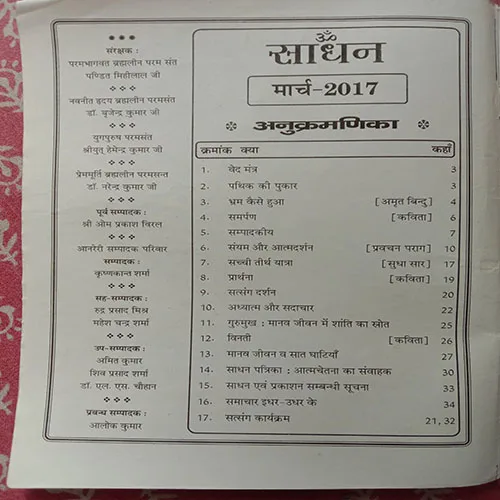 संरक्षक :
परमभागवत ब्रह्मलीन परम संत
पण्डित मिहीलाल जी
नवनीत हृदय ब्रह्मलीन परमसंत
डॉ. बृजेन्द्र कुमार जी
युगपुरुष परमसंत
श्रीयुत् हेमेन्द्र कुमार जी
प्रेममूर्ति ब्रह्मलीन परमसन्त
डॉ. नरेन्द्र कुमार जी
पूर्व सम्पादक :
श्री ओम प्रकाश विरल
आनरेरी सम्पादक परिवार
सम्पादक :
कृष्णकान्त शर्मा
सह-सम्पादक :
रुद्र प्रसाद मिश्र
महेश चन्द्र शर्मा
उप-सम्पादक :
अमित कुमार
शिव प्रसाद शर्मा
डॉ. एल. एस. चौहान
प्रबन्ध सम्पादक :
आलोक कुमार
ॐ
साधन
मार्च-2017
अनुक्रमणिका
क्रमांक क्या कहाँ
1. वेद मंत्र 3
2. पथिक की पुकार 3
3. भ्रम कैसे हुआ [अमृत बिन्दु] 4
4. समर्पण [कविता] 6
5. सम्पादकीय 7
6. संयम और आत्मदर्शन [प्रवचन पराग] 10
7. सच्ची तीर्थ यात्रा [सुधा सार] 17
8. प्रार्थना [कविता] 19
9. सत्संग दर्शन 20
10. अध्यात्म और सदाचार 22
11. गुरुमुख : मानव जीवन में शांति का स्रोत 25
12. विनती [कविता] 26
13. मानव जीवन व सात घाटियाँ 27
14. साधन पत्रिका : आत्मचेतना का संवाहक 30
15. साधन एवं प्रकाशन सम्बन्धी सूचना 33
16. समाचार इधर-उधर के 34
17. सत्संग कार्यक्रम 21, 32